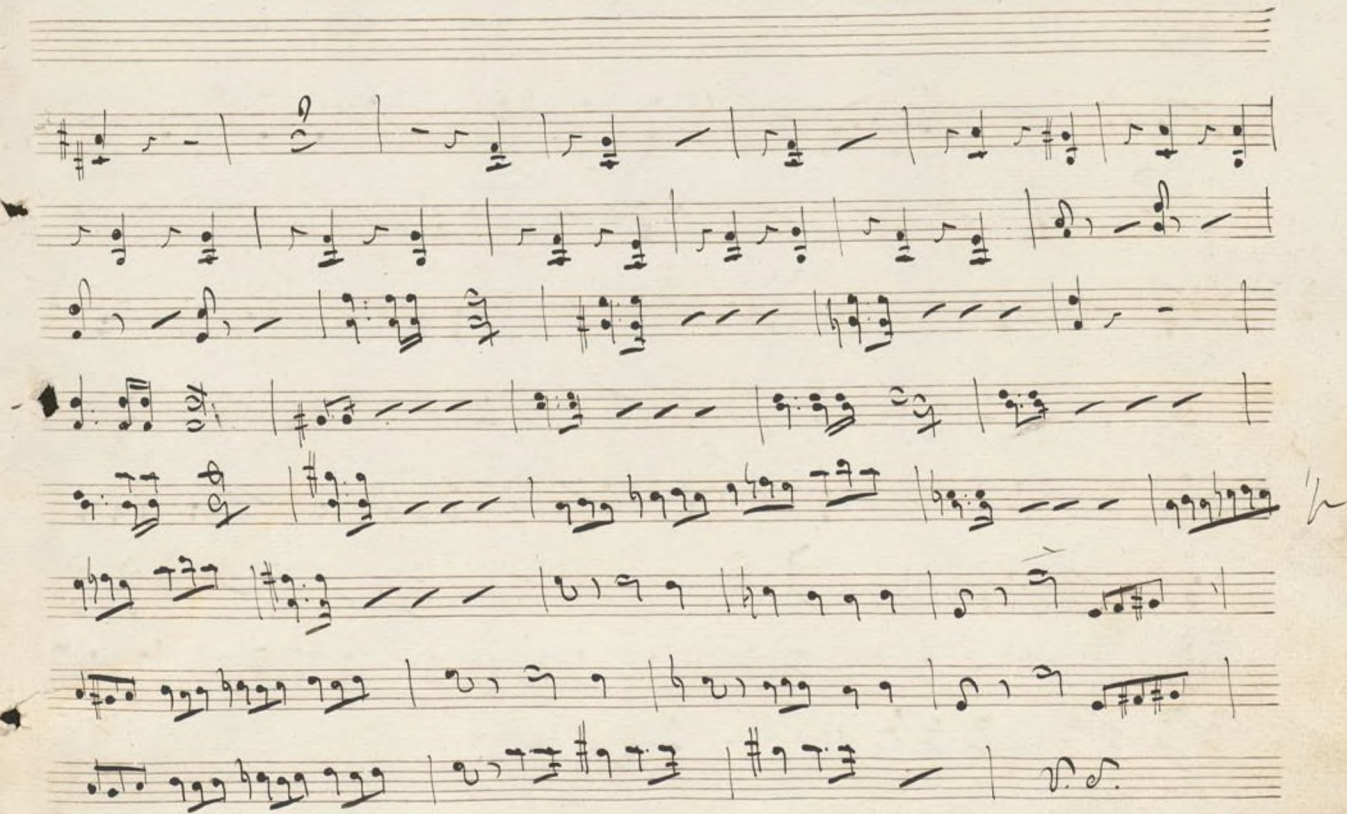 V. S.